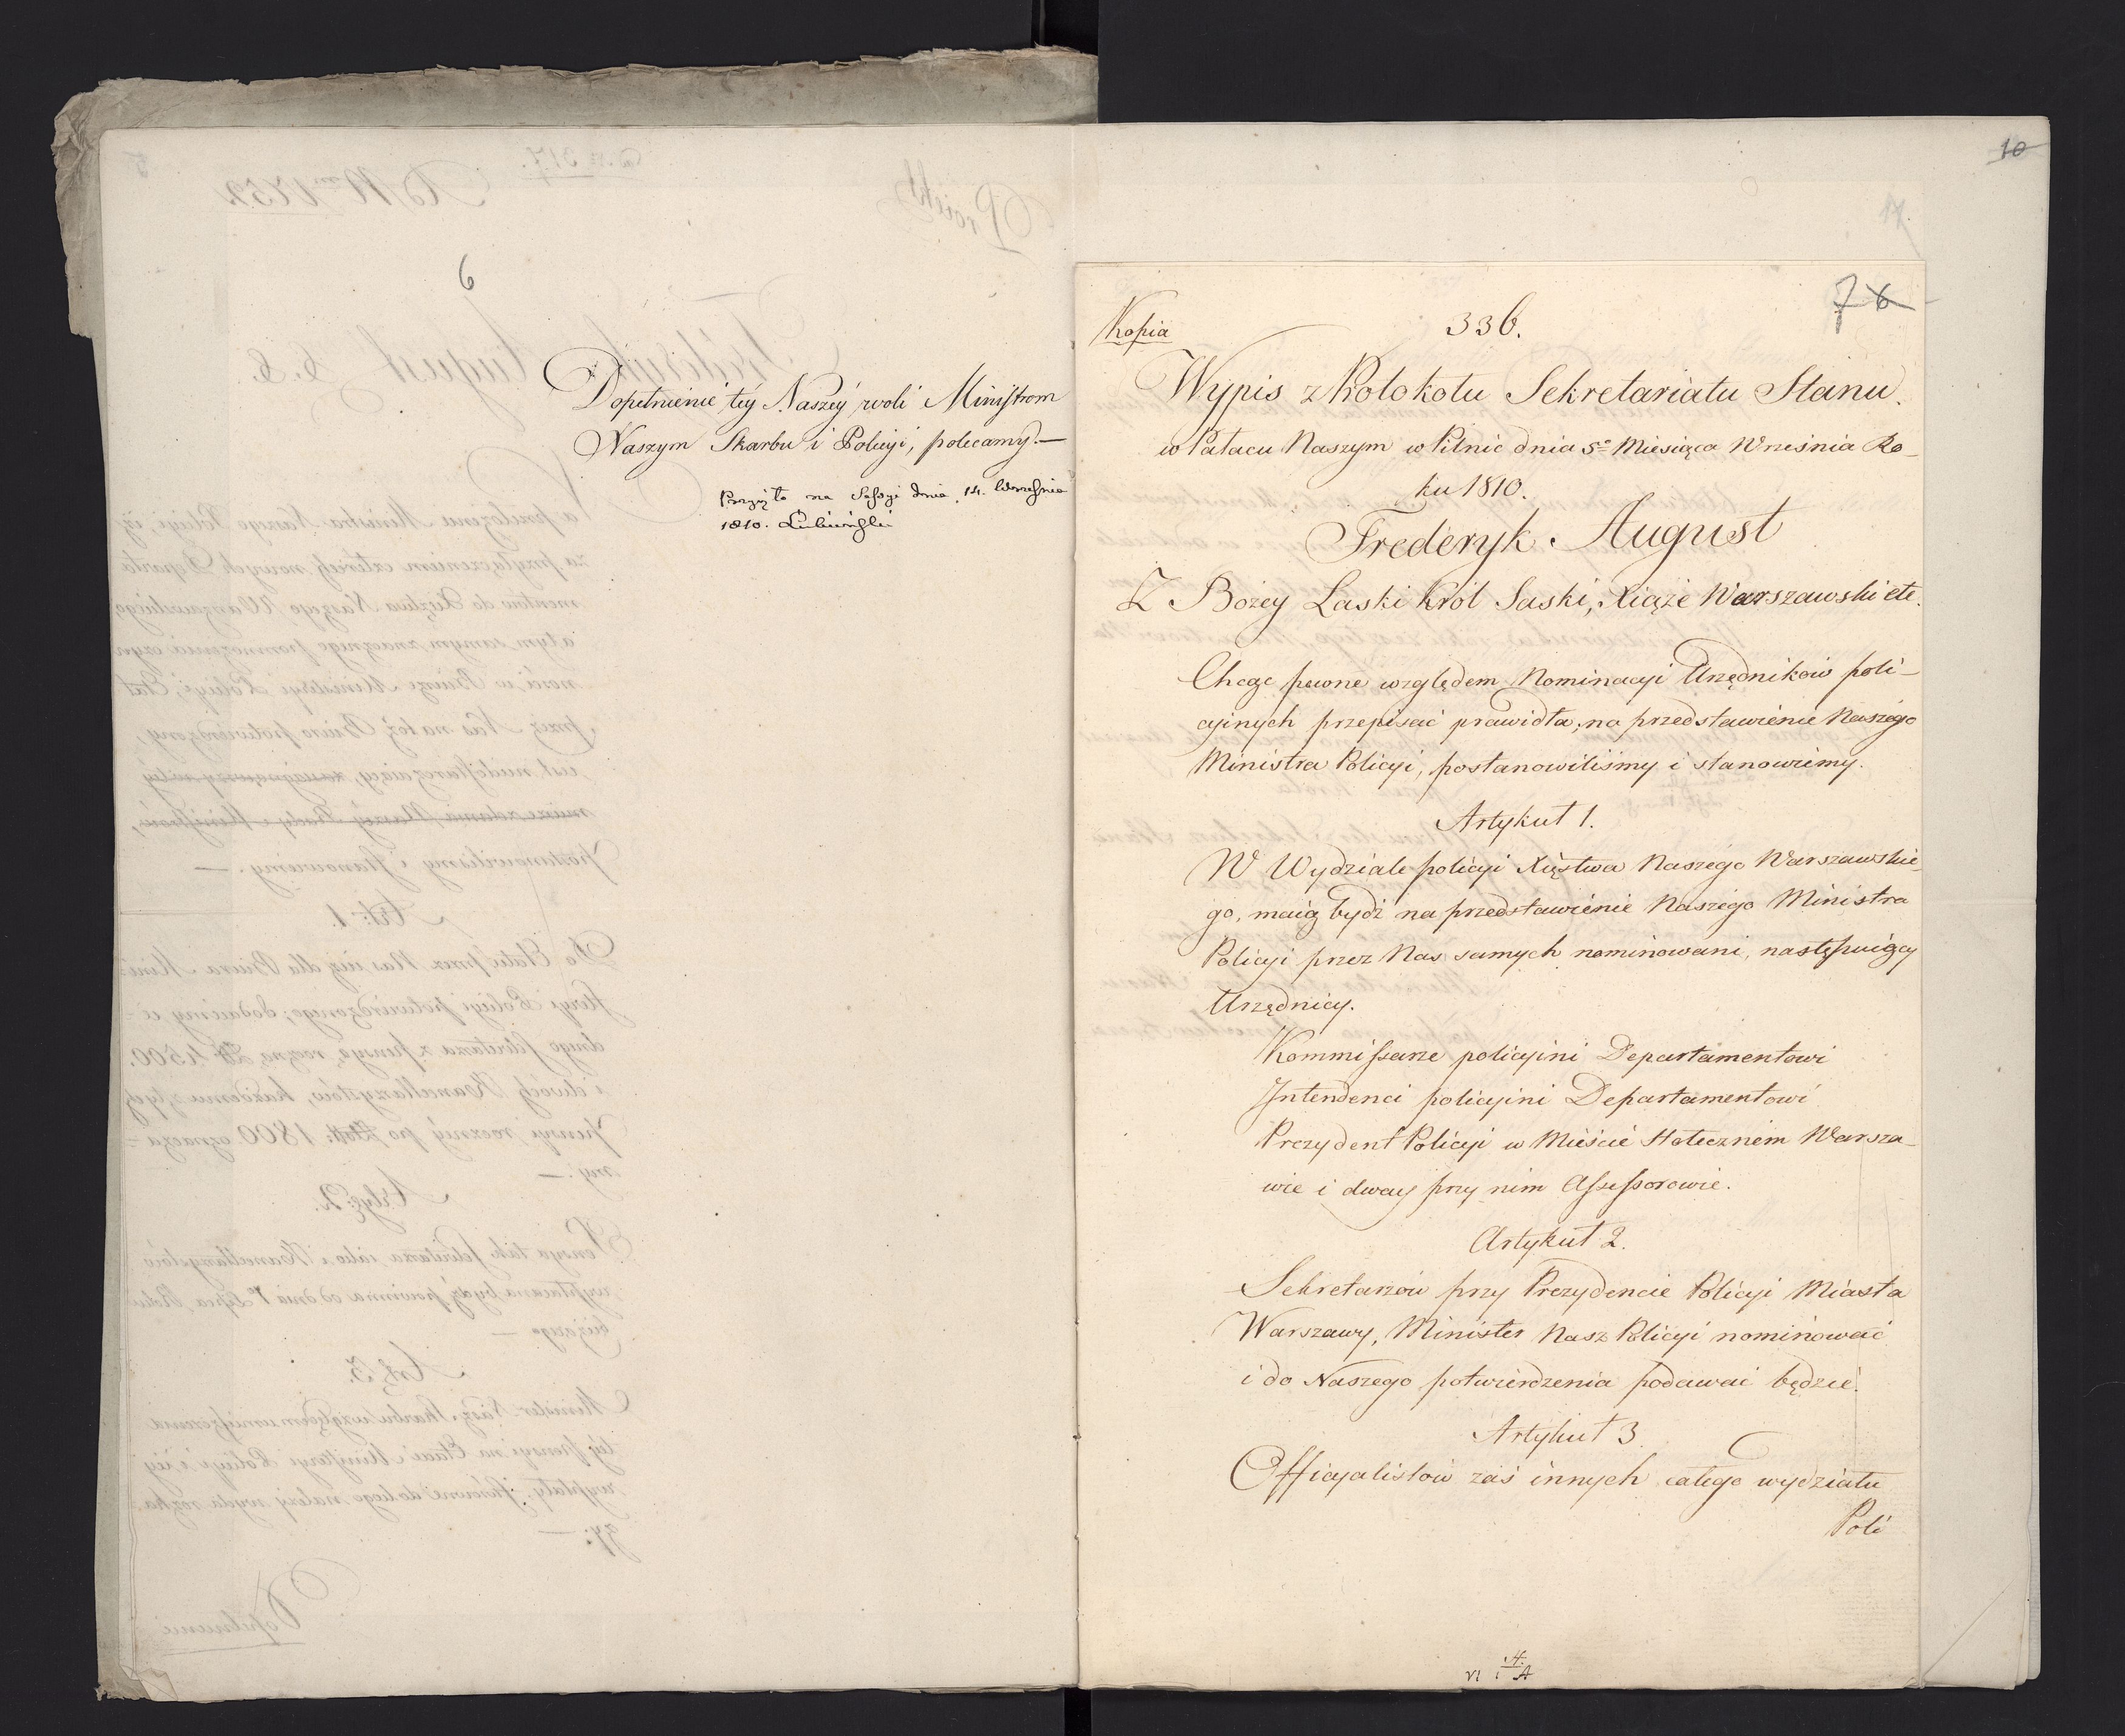 6
Dopełnienie téy Naszéy woli Ministrom
Naszym Skarbu i Policyi, polecamy.—
Przyięto na Sessyi dnia 14. Września
1810. Lubieński
10
7 6
Kopia
336.
Wypis z Protokołu Sekretariatu Stanu.
w Pałacu Naszym w Pilnic dnia 5º Miesiąca Września Ro-
ku 1810.
Frederyk August
Z Bożey Łaski Król Saski, Xiąże Warszawski etc.
Chcąc pewne względem Nominacyi Urzędników poli-
cyinych przepisać prawidła, na przedstawienie Naszego
Ministra Policyi, postanowiliśmy i stanowimy.
Artykuł 1.
W Wydziale policyi Xięstwa Naszego Warszawskie-
go, maią bydź na przedstawienie Naszego Ministra
Policyi przez Nas samych nominowani, następuiący
Urzędnicy.
Kommissarze policyini Departamentowi
Intendenci policyini Departamentowi
Prezydent Policyi w Mieście Stołecznem Warsza-
wie i dway przy nim Assessorowie.
Artykuł 2.
Sekretarzów przy Prezydencie Policyi Miasta
Warszawy, Minister Nasz Policyi nominować
i do Naszego potwierdzenia podawać będzie.
Artykuł 3.
Officyalistów zaś innych całego wydziału
Poli